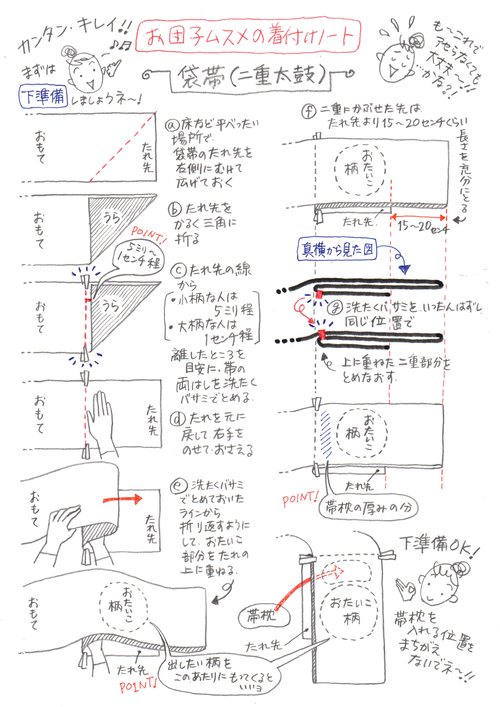 カンタン・キレイ!!
お団子ムスメの着付けノート
も〜これで
アセらなくても
大丈夫〜!!
かな?!
まずは
下準備
しましょうネ〜!
袋帯(二重太鼓)
おもて
たれ先
ⓐ床など平べったい
場所で
袋帯のたれ先を
右側にむけて
広げておく
おもて
うら
ⓑたれ先を
かるく三角に
折る
POINT!
5ミリ〜
1センチ程
おもて
うら
ⓒたれ先の線
から
・小柄な人は
5ミリ程
・大柄な人は
1センチ程
離したところを
目安に、帯の
両はしを洗たく
バサミでとめる.
おもて
たれ先
ⓓたれを元に
戻して右手を
のせておさえる
おもて
たれ先
ⓔ洗たくバサミ
でとめておいた
ラインから
折り返すように
して、おたいこ
部分をたれの
上に重ねる.
おもて
おたいこ
柄
たれ先
POINT!
出したい柄を
このあたりにもってくると
いいヨ
ⓕ二重にかぶせた先は
たれ先より15〜20センチくらい
長さを充分にとる
おたいこ
柄
たれ先
15〜20センチ
真横から見た図
ⓖ洗たくバサミをいったんはずし
同じ位置で
上に重ねた二重部分を
とめなおす.
おたいこ
柄
たれ先
POINT!
帯枕の厚みの分
帯枕
おたいこ
柄
たれ先
下準備OK!
帯枕を
入れる位置を
まちがえ
ないでネ〜!!